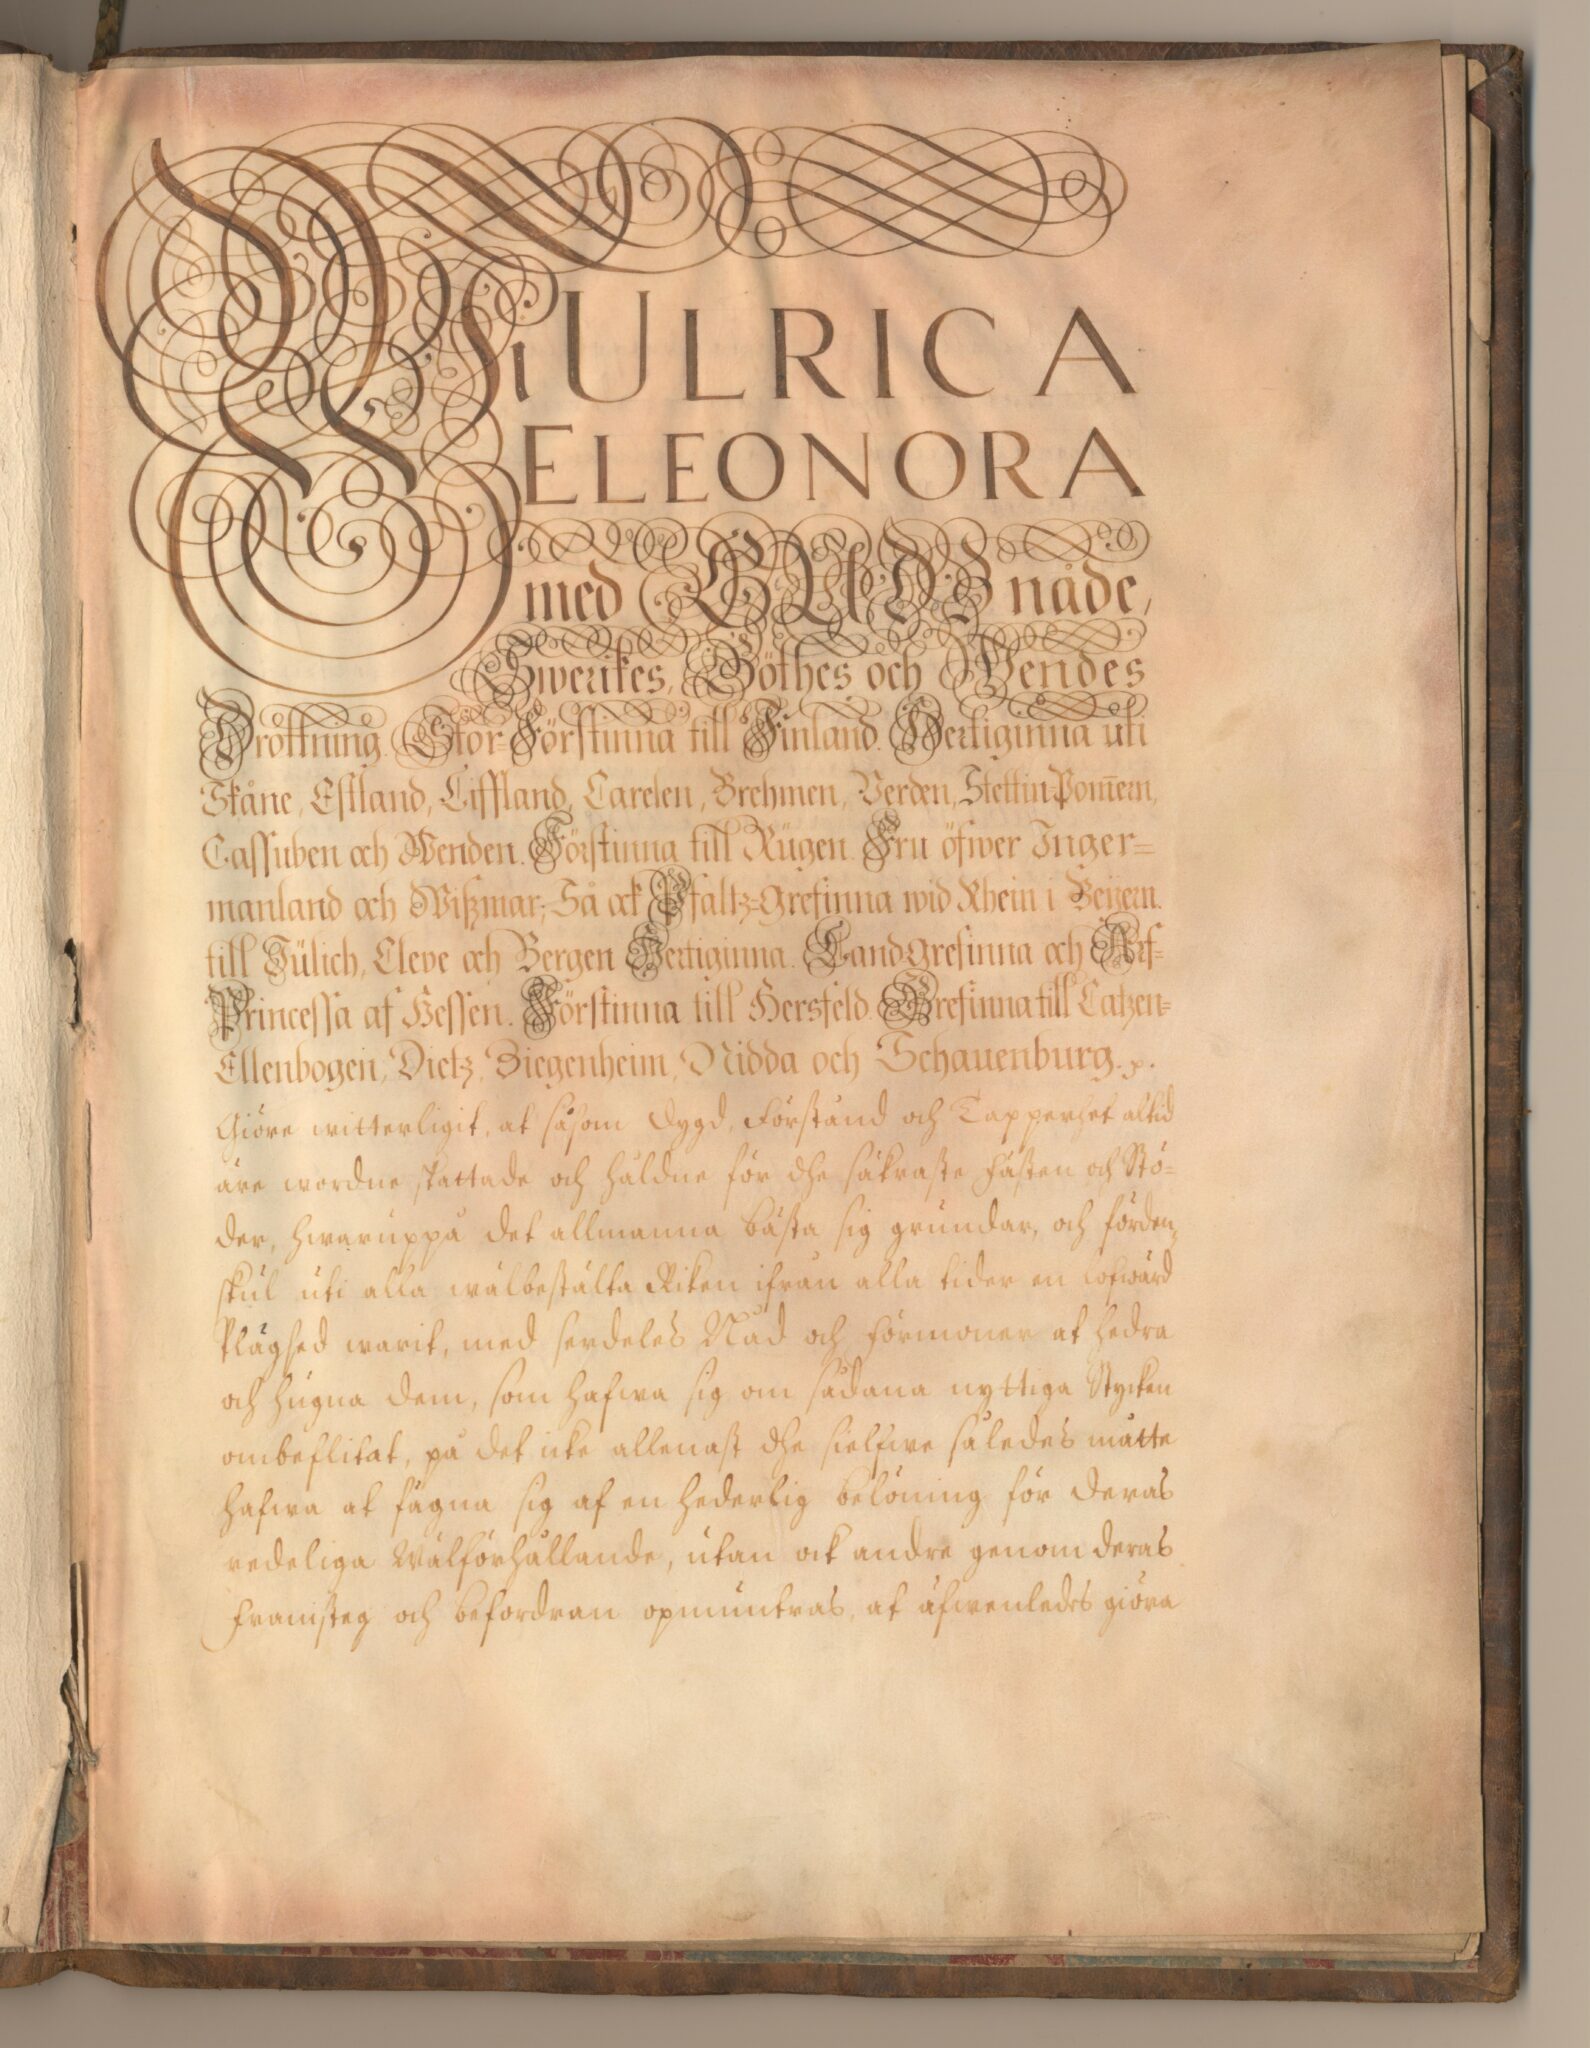 Wi ULRICA
ELEONORA
med GUDZ nåde,
Swerikes, Göthes och Wendes
Drottning. Stor-Förstinna till Finland. Hertiginna uti
Skåne, Estland, Liffland, Carelen, Brehmen, Verden, Stettin-Pom̄ern,
Cassuben och Wenden. Förstinna till Rügen. Fru öfwer Inger=
manland och Wißmar; Så ock Pfaltz-Grefinna wid Rhein i Beijern.
till Jülich, Cleve och Bergen Hertiginna. Landgrefinna och Arf=
Princessa af Hessen. Förstinna till Hersfeld. Grefinna till Catzen=
Ellenbogen, Dietz, Ziegenheim, Nidda och Schauenburg. p.
Giöre witterligit, at såsom Dygd, Förstånd och Tapperhet altid
äre wordne skattade och håldne för dhe säkraste Fästen och Stö=
der, hwaruppå det allmänna bästa sig grundar, och förden=
skul uti alla wälbestälta Riken ifrån alla tider en lofwärd
Plägsed warit, med serdeles Nåd och Förmoner at hedra
och hugna dem, som hafwa sig om sådana nyttiga Stycken
ombeflitat, på det icke allenast dhe sielfwe således måtte
hafwa at fägna sig af en hederlig belöning för deras
redeliga Wälförhållande, utan ock andre genom deras
Framsteg och befordran opmuntras, at äfwenledes giöra